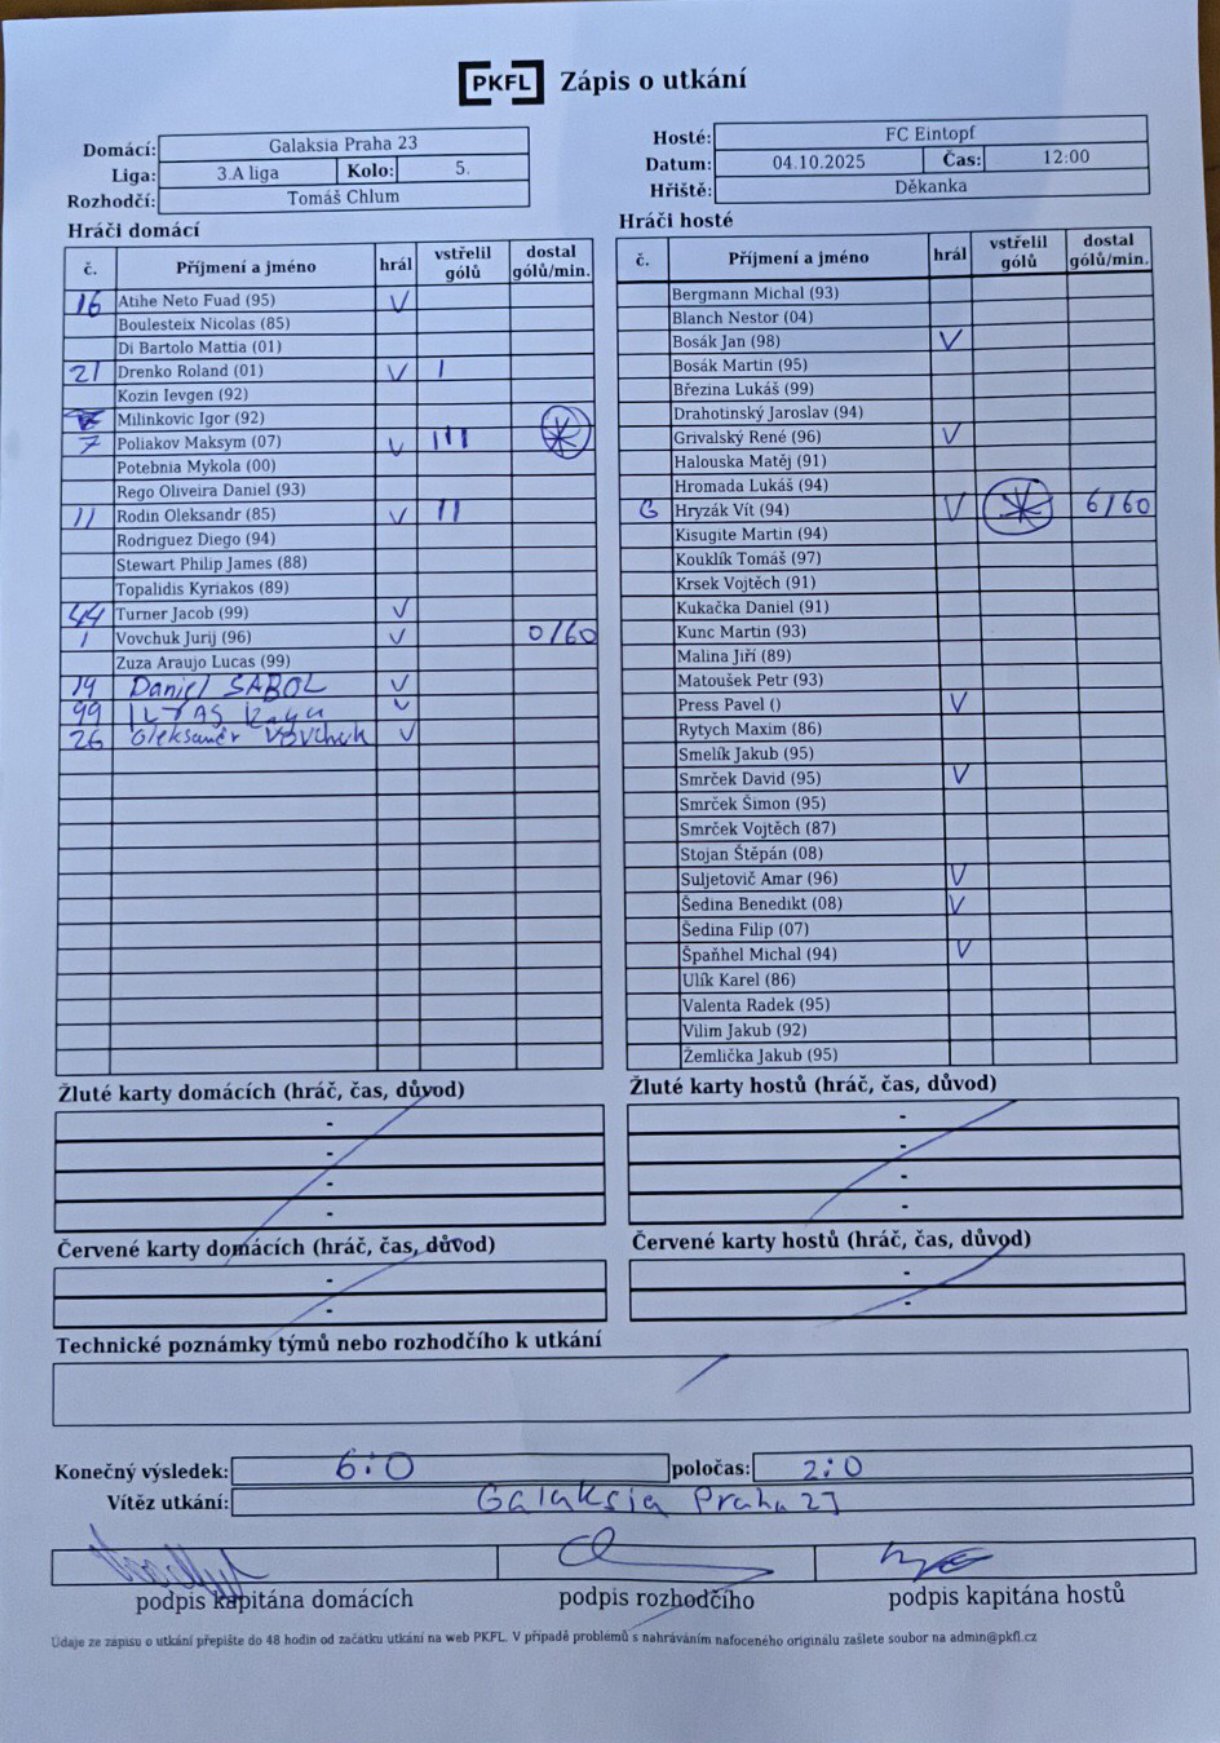 PKFL Zápis o utkání
Domácí: Galaksia Praha 23
Liga: 3.A liga Kolo: 5.
Rozhodčí: Tomáš Chlum
Hosté: FC Eintopf
Datum: 04.10.2025 Čas: 12:00
Hřiště: Děkanka
Hráči domácí
č. Příjmení a jméno hrál vstřelil gólů dostal gólů/min.
16 Atihe Neto Fuad (95) V
Boulesteix Nicolas (85)
Di Bartolo Mattia (01)
21 Drenko Roland (01) V I
Kozin Ievgen (92)
Milinkovic Igor (92)
7 Poliakov Maksym (07) V III
Potebnia Mykola (00)
Rego Oliveira Daniel (93)
11 Rodin Oleksandr (85) V II
Rodriguez Diego (94)
Stewart Philip James (88)
Topalidis Kyriakos (89)
44 Turner Jacob (99) V
1 Vovchuk Jurij (96) V 0/60
Zuza Araujo Lucas (99)
19 Daniel SABOL V
99 V
26 Oleksandr Vovchuk V
Hráči hosté
č. Příjmení a jméno hrál vstřelil gólů dostal gólů/min.
Bergmann Michal (93)
Blanch Nestor (04)
Bosák Jan (98) V
Bosák Martin (95)
Březina Lukáš (99)
Drahotinský Jaroslav (94)
Grivalský René (96) V
Halouska Matěj (91)
Hromada Lukáš (94)
G Hryzák Vít (94) V 6/60
Kisugite Martin (94)
Kouklík Tomáš (97)
Krsek Vojtěch (91)
Kukačka Daniel (91)
Kunc Martin (93)
Malina Jiří (89)
Matoušek Petr (93)
Press Pavel () V
Rytych Maxim (86)
Smelík Jakub (95)
Smrček David (95) V
Smrček Šimon (95)
Smrček Vojtěch (87)
Stojan Štěpán (08)
Suljetovič Amar (96) V
Šedina Benedikt (08) V
Šedina Filip (07)
Špaňhel Michal (94) V
Ulík Karel (86)
Valenta Radek (95)
Vilim Jakub (92)
Žemlička Jakub (95)
Žluté karty domácích (hráč, čas, důvod)
-
-
-
-
Žluté karty hostů (hráč, čas, důvod)
-
-
-
-
Červené karty domácích (hráč, čas, důvod)
-
-
Červené karty hostů (hráč, čas, důvod)
-
-
Technické poznámky týmů nebo rozhodčího k utkání
Konečný výsledek: 6:0 poločas: 2:0
Vítěz utkání: Galaksia Praha 23
podpis kapitána domácích podpis rozhodčího podpis kapitána hostů
Údaje ze zápisu o utkání přepište do 48 hodin od začátku utkání na web PKFL. V případě problémů s nahráváním nafoceného originálu zašlete soubor na admin@pkfl.cz